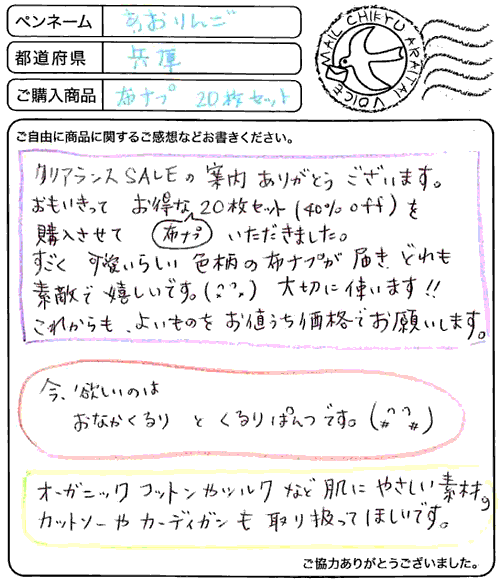 ペンネーム あおりんご
VOICE MAIL CHIKYU ARAITAI
都道府県 兵庫
ご購入商品 布ナプ 20枚セット
ご自由に商品に関するご感想などお書きください。
クリアランスSALEの案内ありがとうございます。
おもいきって お得な20枚セット(40% off)を
購入させて 布ナプ いただきました。
すごく 可愛いらしい 色柄の布ナプが 届き、どれも
素敵で 嬉しいです。(^^) 大切に 使います!!
これからも、よいものを お値うち価格でお願いします。
今、欲しいのは
おなかくるり と くるりぱんつです。(#^^#)
オーガニックコットンやシルクなど 肌に やさしい 素材。
カットソーや カーディガンも 取り扱ってほしいです。
ご協力ありがとうございました。